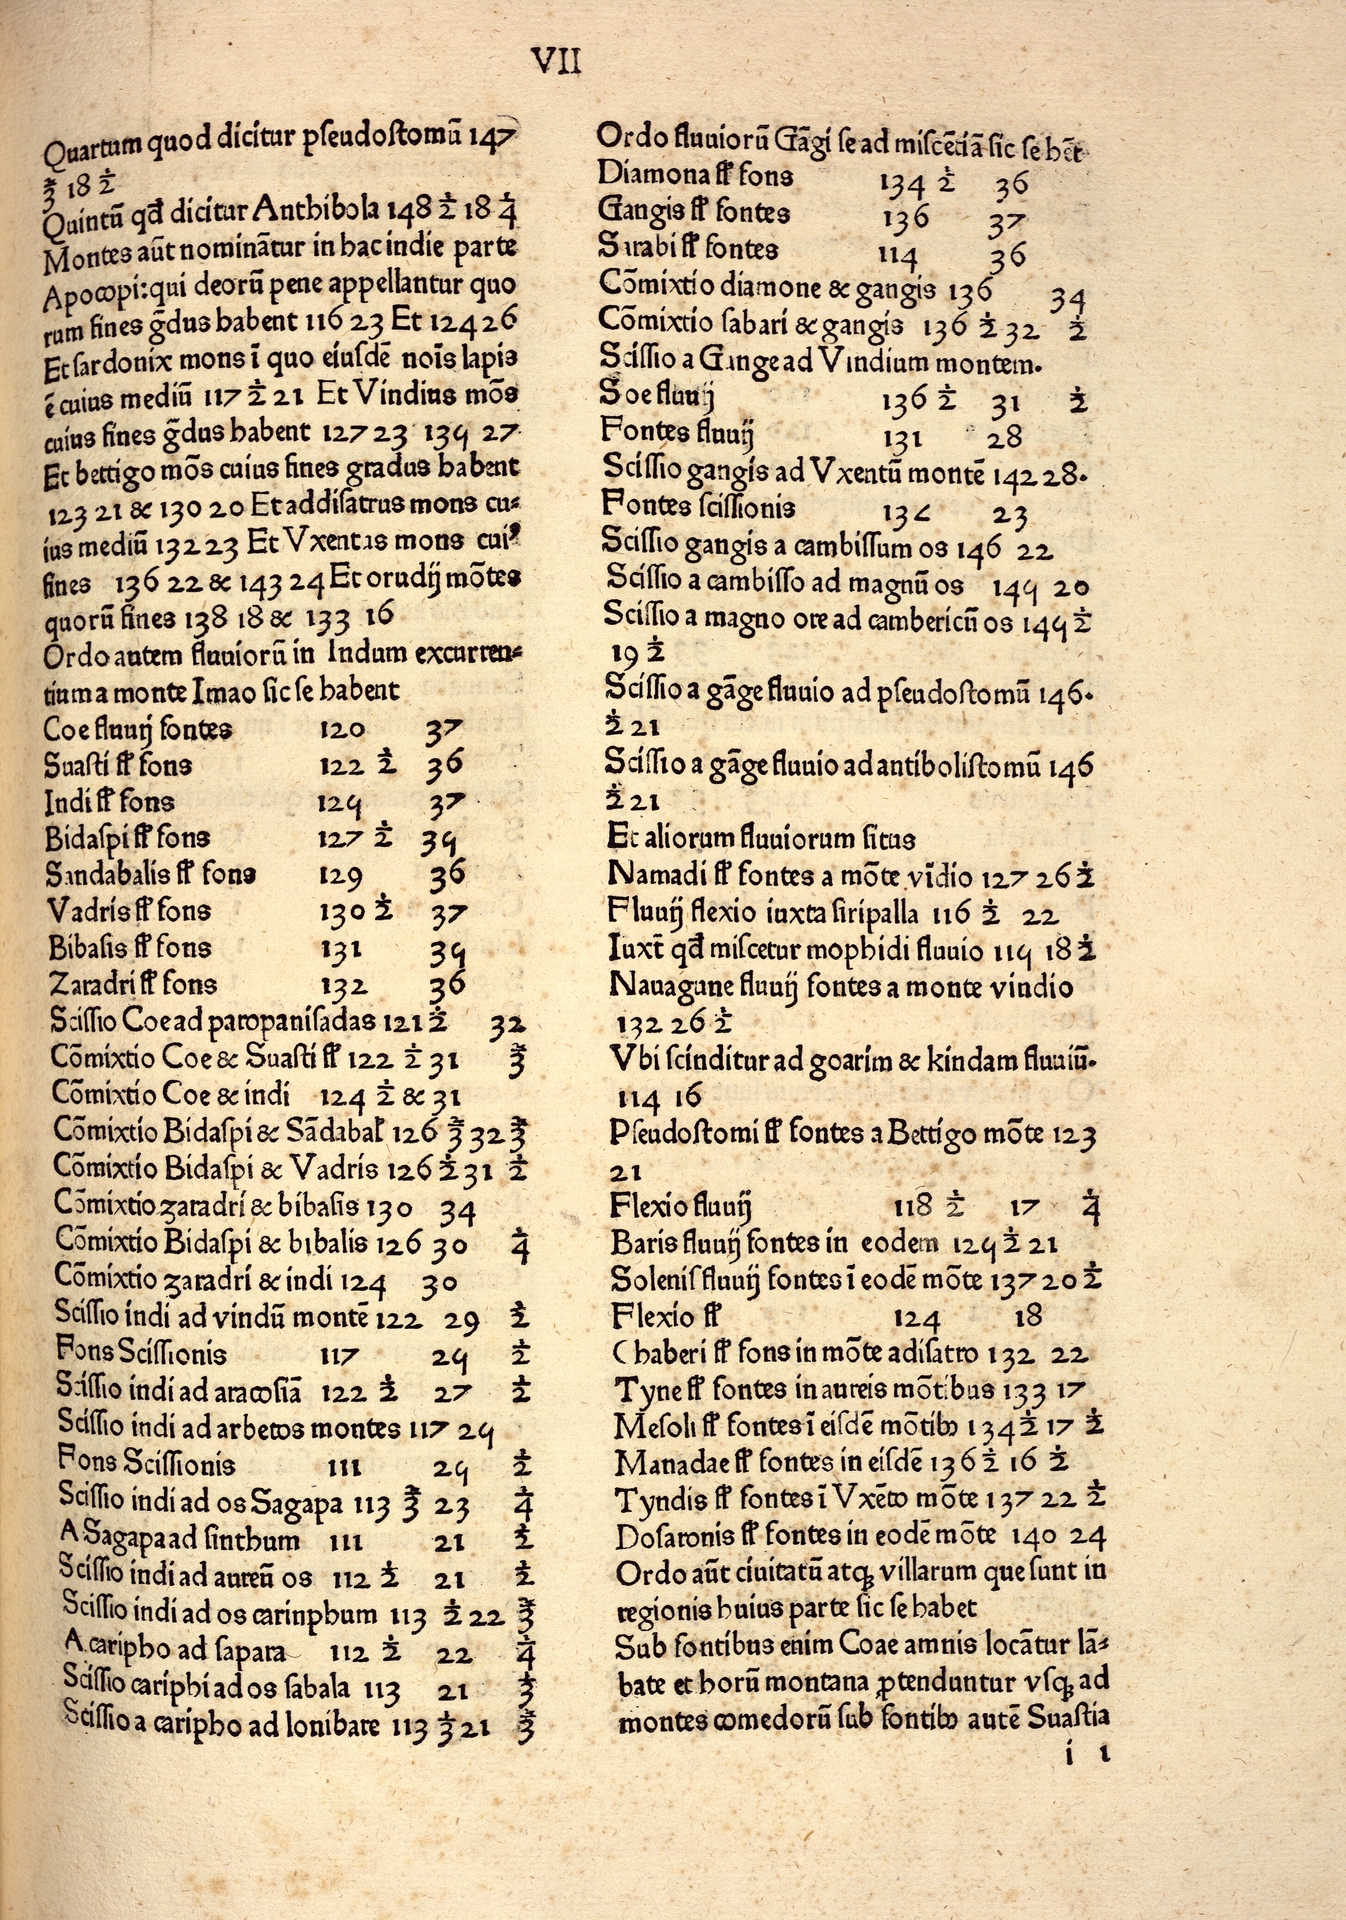 VII
Quartum quod dicitur pſeudoſtomū 147
⅔ 18 ½
Quintū qđ dicitur Anthibola 148 ½ 18 ¼
Montes aūt nominātur in hac indie parte
Apocopi: qui deorū pene appellantur quo
rum fines g̃dus habent 116 23 Et 124 26
Et ſardonix mons ī quo eiuſdē noīs lapis
ē cuius mediū 117 ½ 21 Et Vindius mōs
cuius fines g̃dus habent 127 23 135 27
Et bettigo mōs cuius fines gradus habent
123 21 & 130 20 Et addiſatrus mons cu⸗
ius mediū 132 23 Et Vxentus mons cuiꝰ
fines 136 22 & 143 24 Et orudij mōtes
quorū fines 138 18 & 133 16
Ordo autem fluuiorū in Indum excurren⸗
tium a monte Imao ſic ſe habent
Coe fluuij fontes 120 37
Suaſti fl̄ fons 122 ½ 36
Indi fl̄ fons 125 37
Bidaſpi fl̄ fons 127 ½ 35
Sandabalis fl̄ fons 129 36
Vadris fl̄ fons 130 ½ 37
Bibaſis fl̄ fons 131 35
Zaradri fl̄ fons 132 36
Sciſſio Coe ad paropaniſadas 121 ½ 32
Cōmixtio Coe & Suaſti fl̄ 122 ½ 31 ⅔
Cōmixtio Coe & indi 124 ½ & 31
Cōmixtio Bidaſpi & Sādabal̄ 126 ⅔ 32 ⅔
Cōmixtio Bidaſpi & Vadris 126 ½ 31 ½
Cōmixtio zaradri & bibaſis 130 34
Cōmixtio Bidaſpi & bibalis 126 30 ¼
Cōmixtio zaradri & indi 124 30
Sciſſio indi ad vindū montē 122 29 ½
Fons Sciſſionis 117 25 ½
Sciſſio indi ad aracoſiā 122 ½ 27 ½
Sciſſio indi ad arbetos montes 117 25
Fons Sciſſionis 111 25 ½
Sciſſio indi ad os Sagapa 113 ⅔ 23 ¼
A Sagapa ad ſinthum 111 21 ½
Sciſſio indi ad aureū os 112 ½ 21 ½
Sciſſio indi ad os carinphum 113 ½ 22 ⅔
A caripho ad ſapara 112 ½ 22 ¼
Sciſſio cariphi ad os ſabala 113 21 ⅓
Sciſſio a caripho ad lonibare 113 ⅓ 21 ⅔
Ordo fluuiorū Gāgi ſe ad miſcētiā ſic ſe hēt
Diamona fl̄ fons 134 ½ 36
Gangis fl̄ fontes 136 37
Sarabi fl̄ fontes 114 36
Cōmixtio diamone & gangis 136 34
Cōmixtio ſabari & gangis 136 ½ 32 ½
Sciſſio a Gange ad Vindium montem.
Soe fluuij 136 ½ 31 ½
Fontes fluuij 131 28
Sciſſio gangis ad Vxentū montē 142 28.
Fontes ſciſſionis 23
Sciſſio gangis a cambiſſum os 146 22
Sciſſio a cambiſſo ad magnū os 145 20
Sciſſio a magno ore ad cambericū os 145 ½
19 ½
Sciſſio a gāge fluuio ad pſeudoſtomū 146.
½ 21
Sciſſio a gāge fluuio ad antiboliſtomū 146
½ 21
Et aliorum fluuiorum ſitus
Namadi fl̄ fontes a mōte vīdio 127 26 ½
Fluuij flexio iuxta ſiripalla 116 ½ 22
Iuxt̄ qđ miſcetur mophidi fluuio 115 18 ½
Nauagune fluuij fontes a monte vindio
132 26 ½
Vbi ſcinditur ad goarim & kindam fluuiū.
114 16
Pſeudoſtomi fl̄ fontes a Bettigo mōte 123
21
Flexio fluuij 118 ½ 17 ¼
Baris fluuij fontes in eodem 125 ½ 21
Solenis fluuij fontes ī eodē mōte 137 20 ½
Flexio fl̄ 124 18
Chaberi fl̄ fons in mōte adiſatro 132 22
Tyne fl̄ fontes in aureis mōtibus 133 17
Meſoli fl̄ fontes ī eiſdē mōtibꝰ 134 ½ 17 ½
Manadae fl̄ fontes in eiſdē 136 ½ 16 ½
Tyndis fl̄ fontes ī Vxēto mōte 137 22 ½
Doſaronis fl̄ fontes in eodē mōte 140 24
Ordo aūt ciuitatū atqꝫ villarum que ſunt in
regionis huius parte ſic ſe habet
Sub fontibus enim Coae amnis locātur lā⸗
bate et horū montana ꝓtenduntur vſqꝫ ad
montes comedorū ſub fontibꝰ autē Suaſtia
i 1